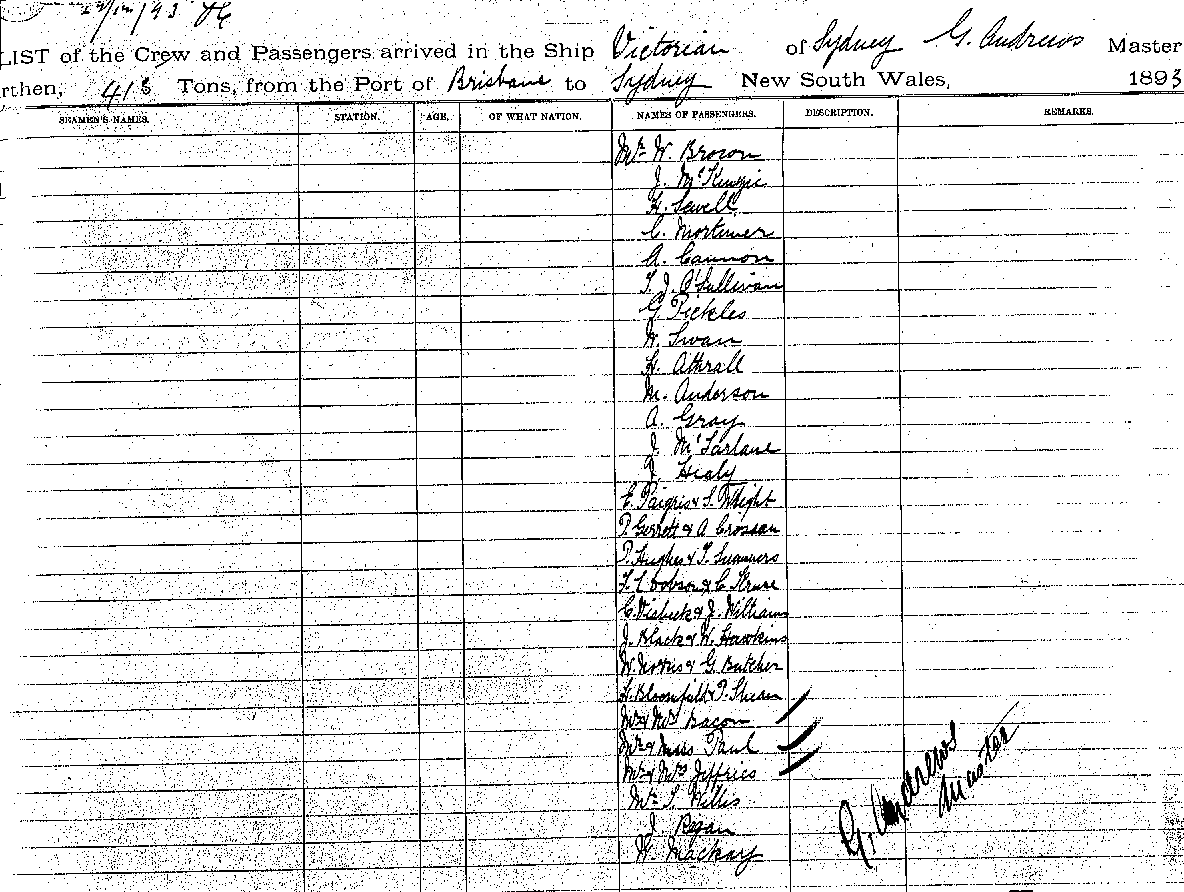 /93
LIST of the Crew and Passengers arrived in the Ship Victorian of Sydney G. Andrews Master
rthen, 415 Tons, from the Port of Brisbane to Sydney New South Wales, 1893
SEAMEN'S NAMES. STATION. AGE. OF WHAT NATION. NAMES OF PASSENGERS. DESCRIPTION. REMARKS.
Mr. W. Brown
J. McKenzie
H. Sewell
C. Mortimer
A. Cannon
T. J. O'Sullivan
G. Pickles
W. Swan
H. Athrall
M. Anderson
A. Gray
J. McFarlane
J. Healy
E. Paigris & S. Wright
P. Gerrett & A Crossan
P. Hughes & T. Summers
Dobson & C. Kruse
C. Visbeck & J. Williams
J. Black & W. Hawkins
W. Norris & G. Butcher
Bloomfield & P. Shean
Mr & Mrs Bacon
Mr & Miss Paul
Mr & Mrs Jeffries
Mr. S. Willis
J. Regan
W. Mackay
G. Andrews
Master